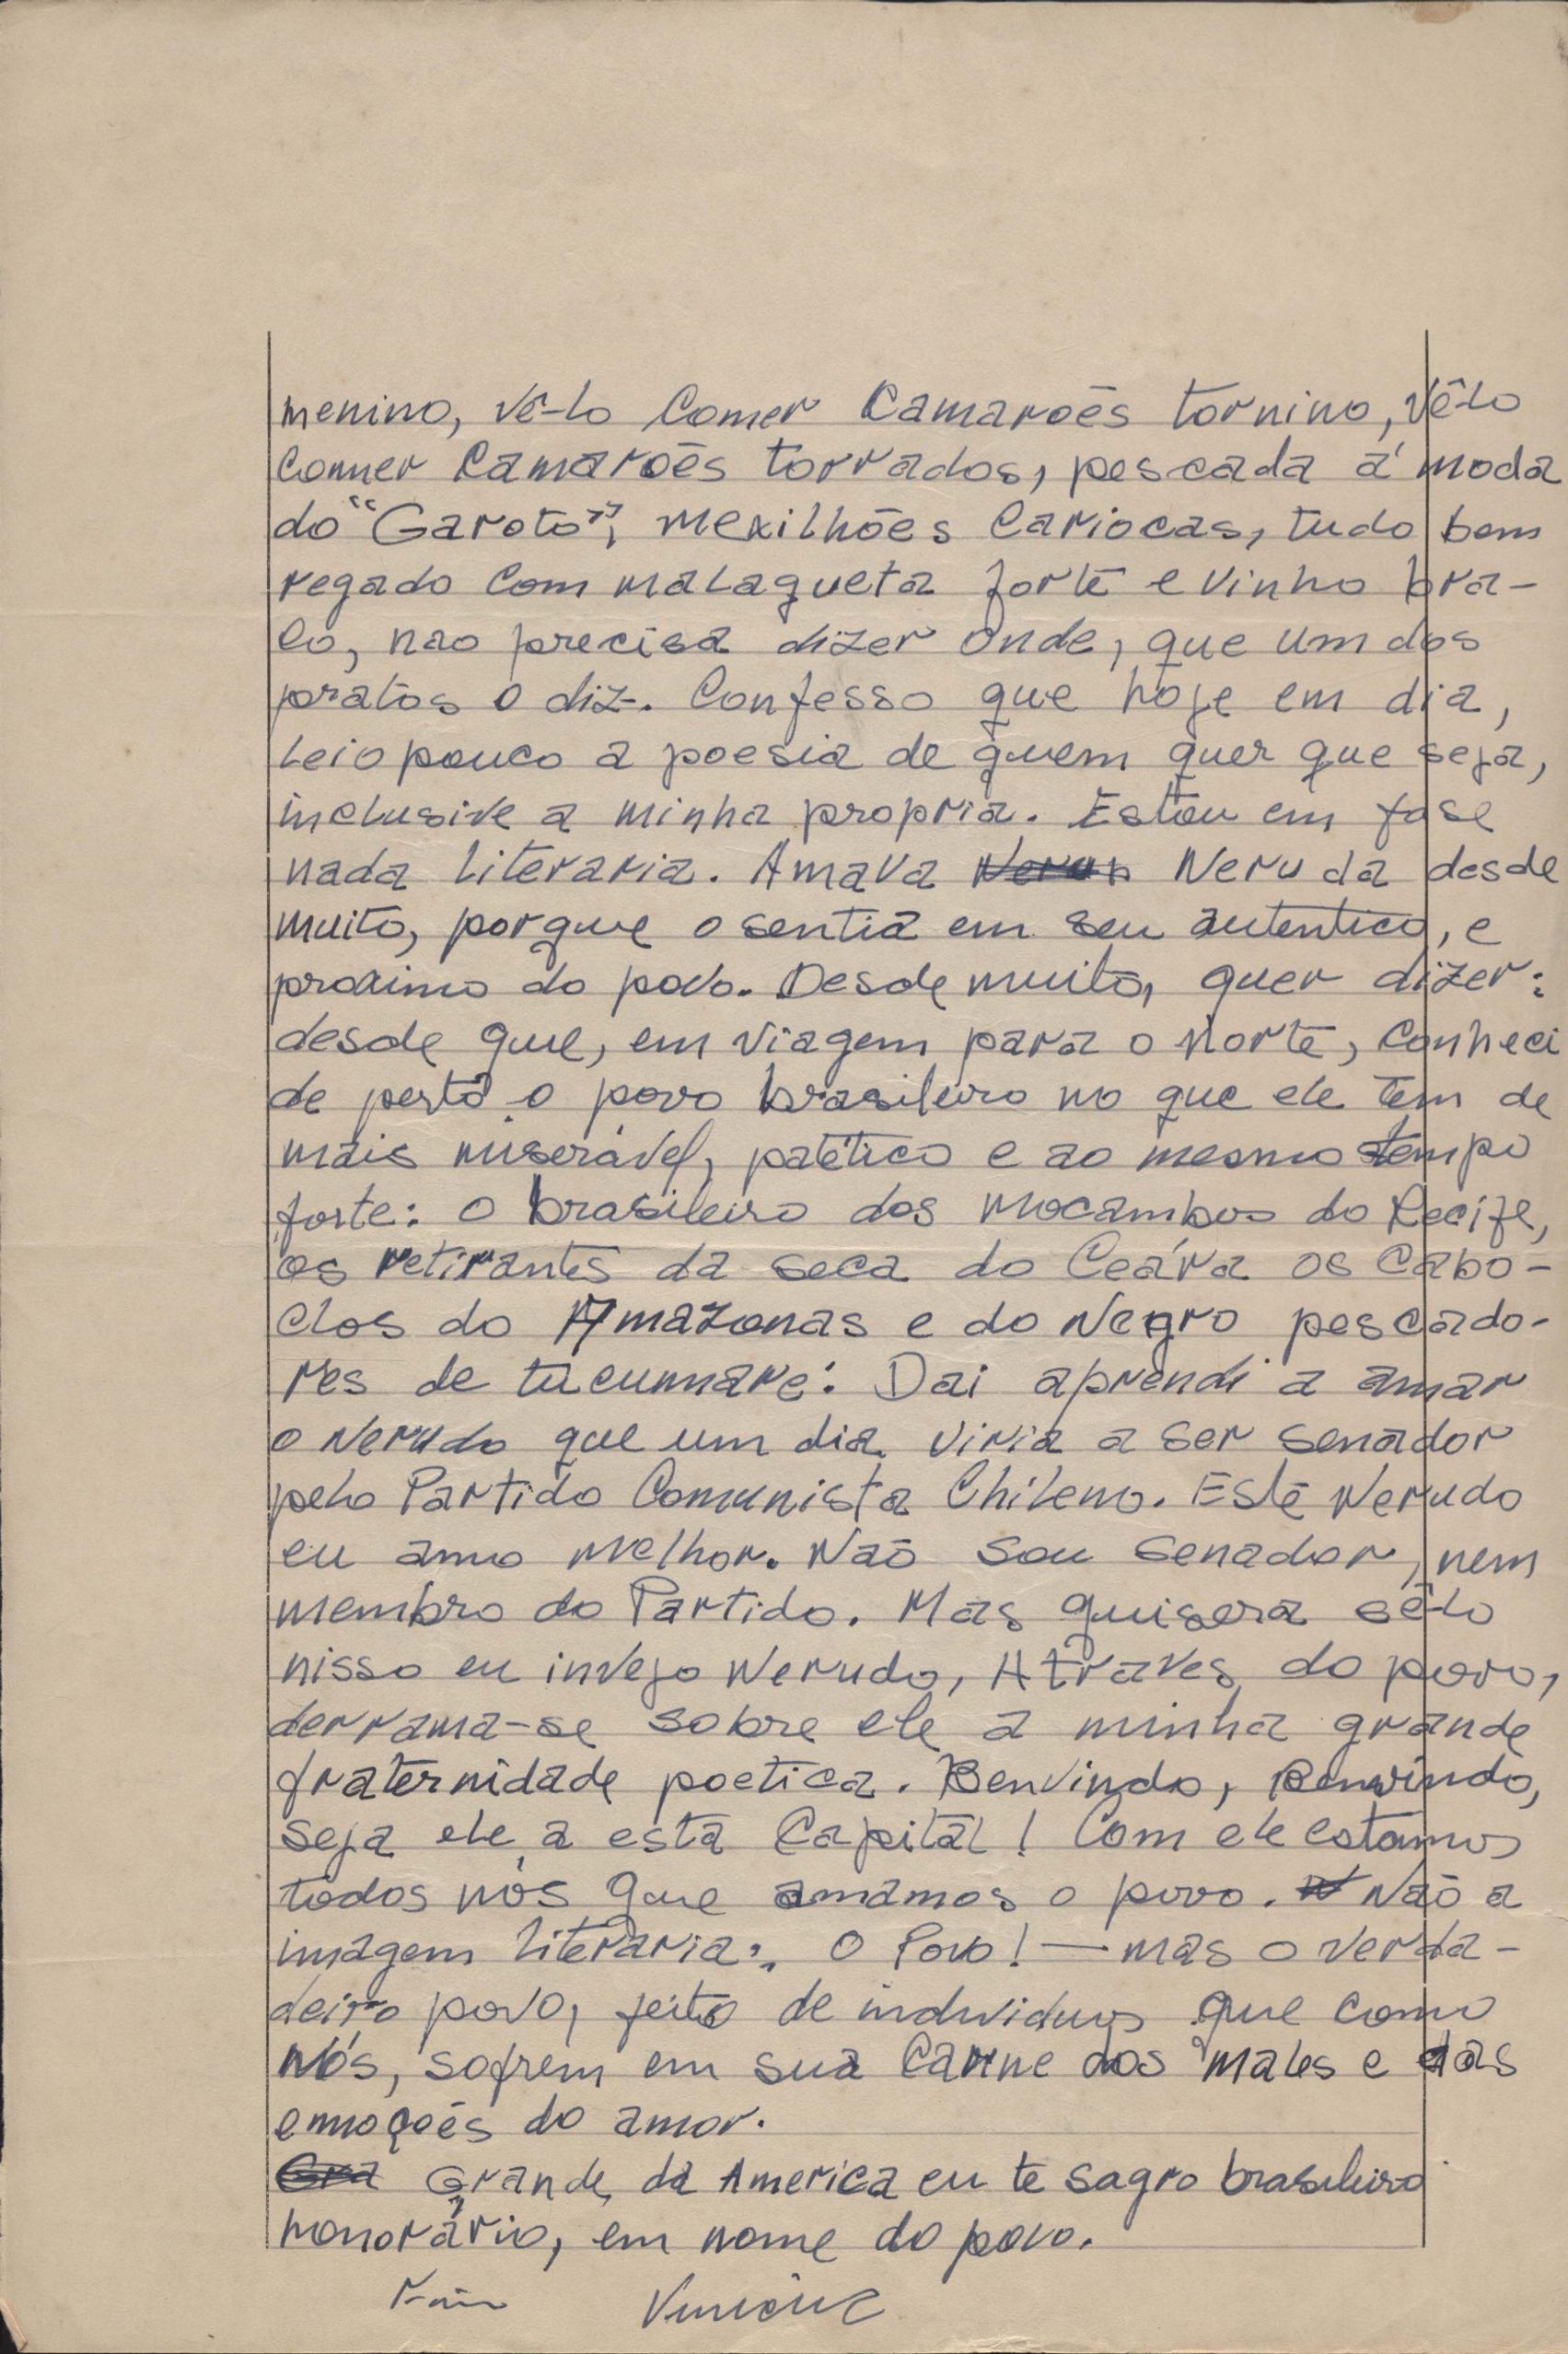 menino, vê-lo comer camarões tornino, vê-lo
comer camarões torrados, pescada á moda
do "Garoto", mexilhões cariocas, tudo bem
regado com malagueta forte e vinho bra-
co, não precisa dizer onde, que um dos
pratos o diz. Confesso que hoje em dia,
leio pouco a poesia de quem quer que seja,
inclusive a minha propria. Estou em fase
nada literaria. Amava Neruda desde
muito, porque o sentia em seu autentico, e
proximo do povo. Desde muito, quer dizer:
desde que, em viagem para o Norte, conheci
de perto o povo brasileiro no que ele tem de
mais miserável, patético e ao mesmo tempo
forte: o brasileiro dos mocambos do Recife,
os retirantes da seca do Ceára os cabo-
clos do Amazonas e do Negro pescado-
res de tucumnaré. Dai aprendi a amar
o Nerudo que um dia viria a ser senador
pelo Partido Comunista Chileno. Este Nerudo
eu amo melhor. Não sou senador, nem
membro do Partido. Mas quisera sê-lo
nisso eu invejo Nerudo, Atraves do povo,
derrama-se sobre ele a minha grande
fraternidade poetica. Benvindo, Benvindo,
seja ele a esta Capital! Com ele estamos
todos nós que amamos o povo. Não a
imagem literaria: O Povo! — mas o verda-
deiro povo, feito de individuos que como
Nós, sofrem em sua carne dos males e das
emoções do amor.
Grande da America eu te sagro brasileiro
honorário, em nome do povo.